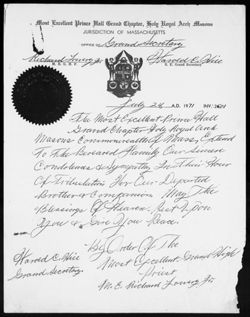 Most Excellent Prince Hall Grand Chapter, Holy Royal Arch Masons
JURISDICTION OF MASSACHUSETTS
OFFICE OF Grand Secretary
Harold C.
July 28 A.D. 1971
The Most Excellent Prince Hall
Grand Chapter Holy Royal Arch
Masons Commonwealth of Mass, Extend
To The Bereaved Family Our Sincere
Condolence & Sympathy In Their Hour
Of Tribulation For Our Departed
Brother & Companion May The
Blessings Of Heaven Rest Upon
You & Give You Peace.
By Order Of The
Most Excellent Grand High
Priest
Harold C.
Grand Secretary
M.E. Richard Jr.